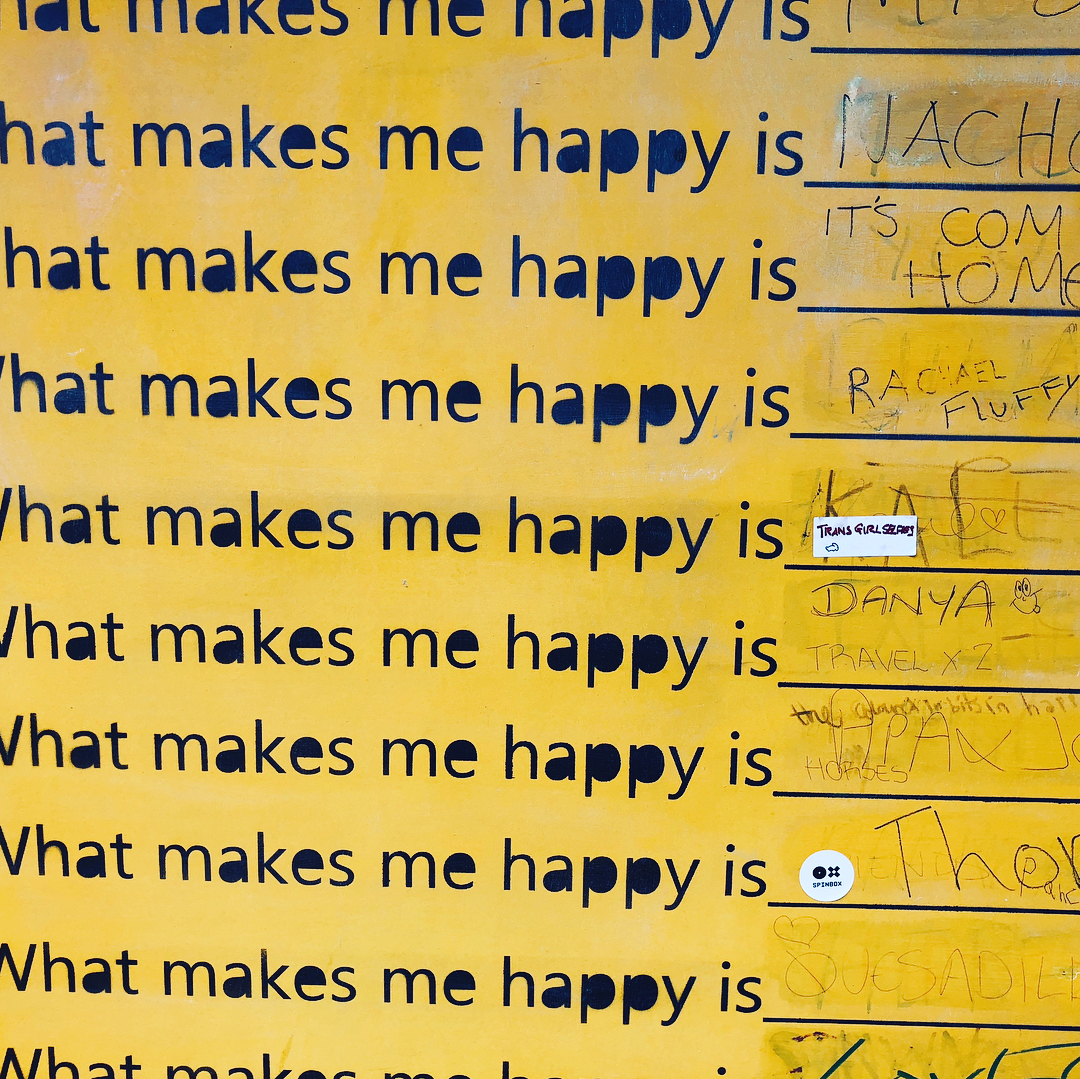 hat makes me happy is
hat makes me happy is NACHO
hat makes me happy is IT'S COM
HOME
What makes me happy is RACHAEL
FLUFFY
What makes me happy is KALE
TRANS GIRL SELFIES
What makes me happy is DANYA
TRAVEL X 2
the coloured in bits in
What makes me happy is
HORSES
What makes me happy is Thor
SPINBOX
What makes me happy is QUESADILL
What makes me